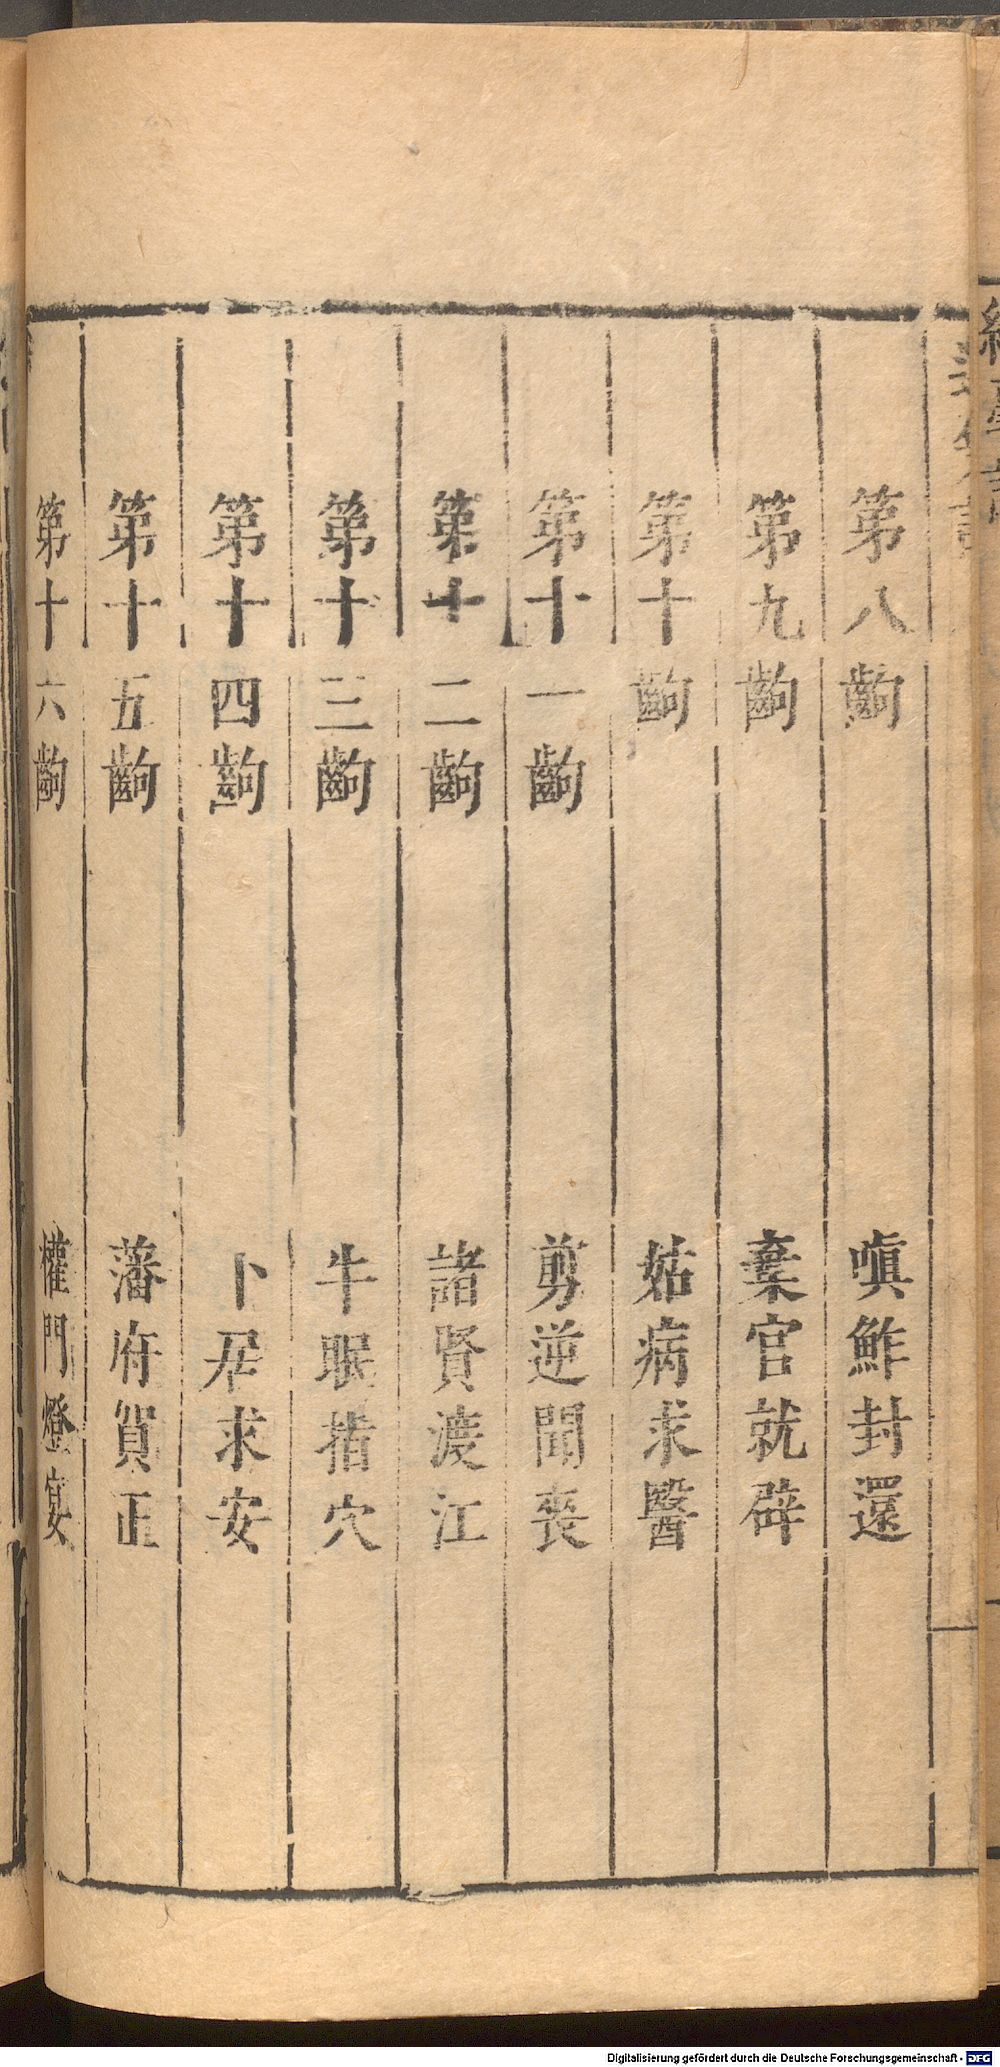 第八齣 嗔鮓封還
第九齣 棄官就辟
第十齣 姑病求醫
第十一齣 剪逆聞喪
第十二齣 諸賢渡江
第十三齣 牛眠指穴
第十四齣 卜居求安
第十五齣 藩府賀正
第十六齣 權門燈宴
Digitalisierung gefördert durch die Deutsche Forschungsgemeinschaft - DFG